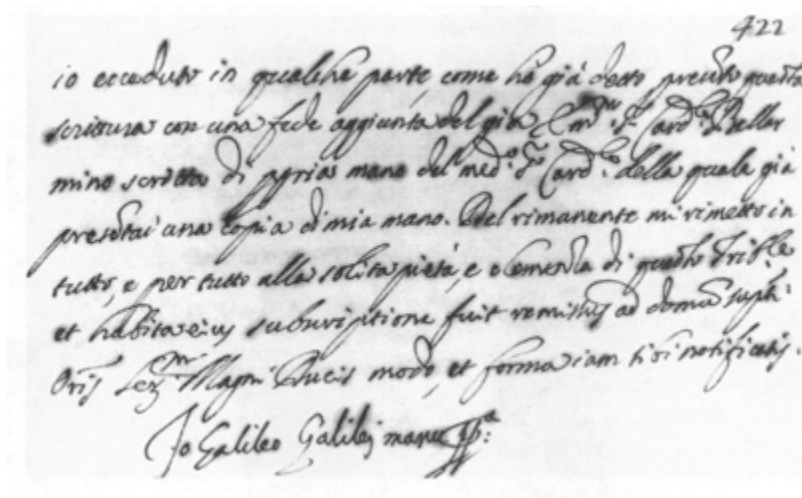 422
io ecceduto in qualche parte, come hò già detto presento questa
scrittura con una fede aggiunta del già Emmo Sr Cardle Bellar
mino scritta di ppria mano del medo Sr Cardle della quale già
presentai una copia di mia mano. Del rimanente mi rimetto in
tutto, e per tutto alla solita pietà, e clemenza di questo Trible
et habita eius subscriptione fuit remissus ad domum supti
Oris Sermi Magni Ducis modo, et forma iam sibi notificatis.
Io Galileo Galilei manu ppa: